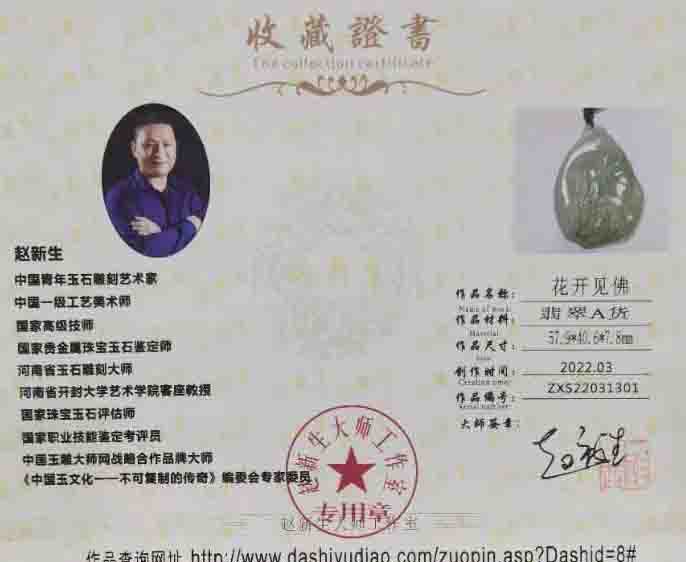 收藏證書
The collection certificate
赵新生
中国青年玉石雕刻艺术家
中国一级工艺美术师
国家高级技师
国家贵金属珠宝玉石鉴定师
河南省玉石雕刻大师
河南省开封大学艺术学院客座教授
国家珠宝玉石评估师
国家职业技能鉴定考评员
中国玉雕大师网战略合作品牌大师
《中国玉文化——不可复制的传奇》编委会专家委员
作品名称: 花开见佛
Name of work:
作品材料: 翡翠A货
Material:
作品尺寸: 57.9*40.6*7.8mm
Size:
创作时间: 2022.03
Creation time:
作品编号: ZXS22031301
Serial number:
大师签章: 赵新生
赵新生大师工作室
专用章
赵新生大师工作室
作品查询网址 http://www.dashiyudiao.com/zuopin.asp?Dashid=8#